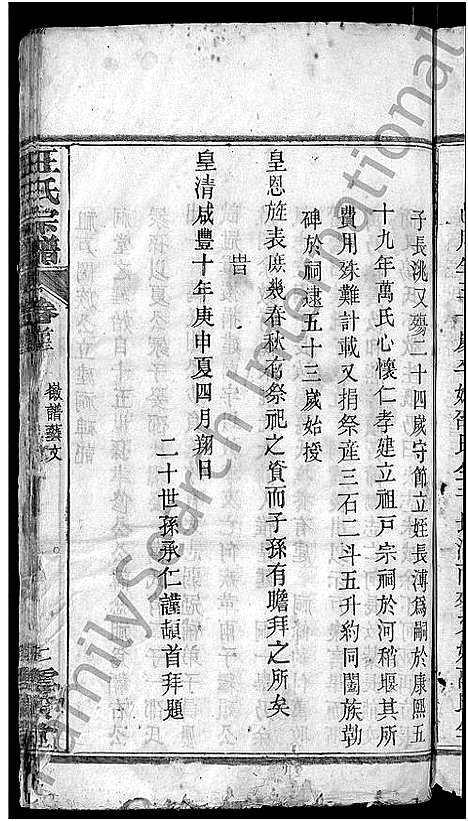 子長洮又殤二十四歲守節立姪長溥爲嗣於康熙五
十九年萬氏心懷仁孝建立祖戶宗祠於河稍堰其所
費用殊難計載又捐祭產三石二斗五升約同闔族勒
碑於祠逮五十三歲始授
皇恩旌表庶幾春秋有祭祀之資而子孫有瞻拜之所矣
旹
皇清咸豐十年庚申夏四月朔日
二十世孫承仁謹頓首拜題
汪氏宗譜
卷首
譜藝文
FamilySearch International